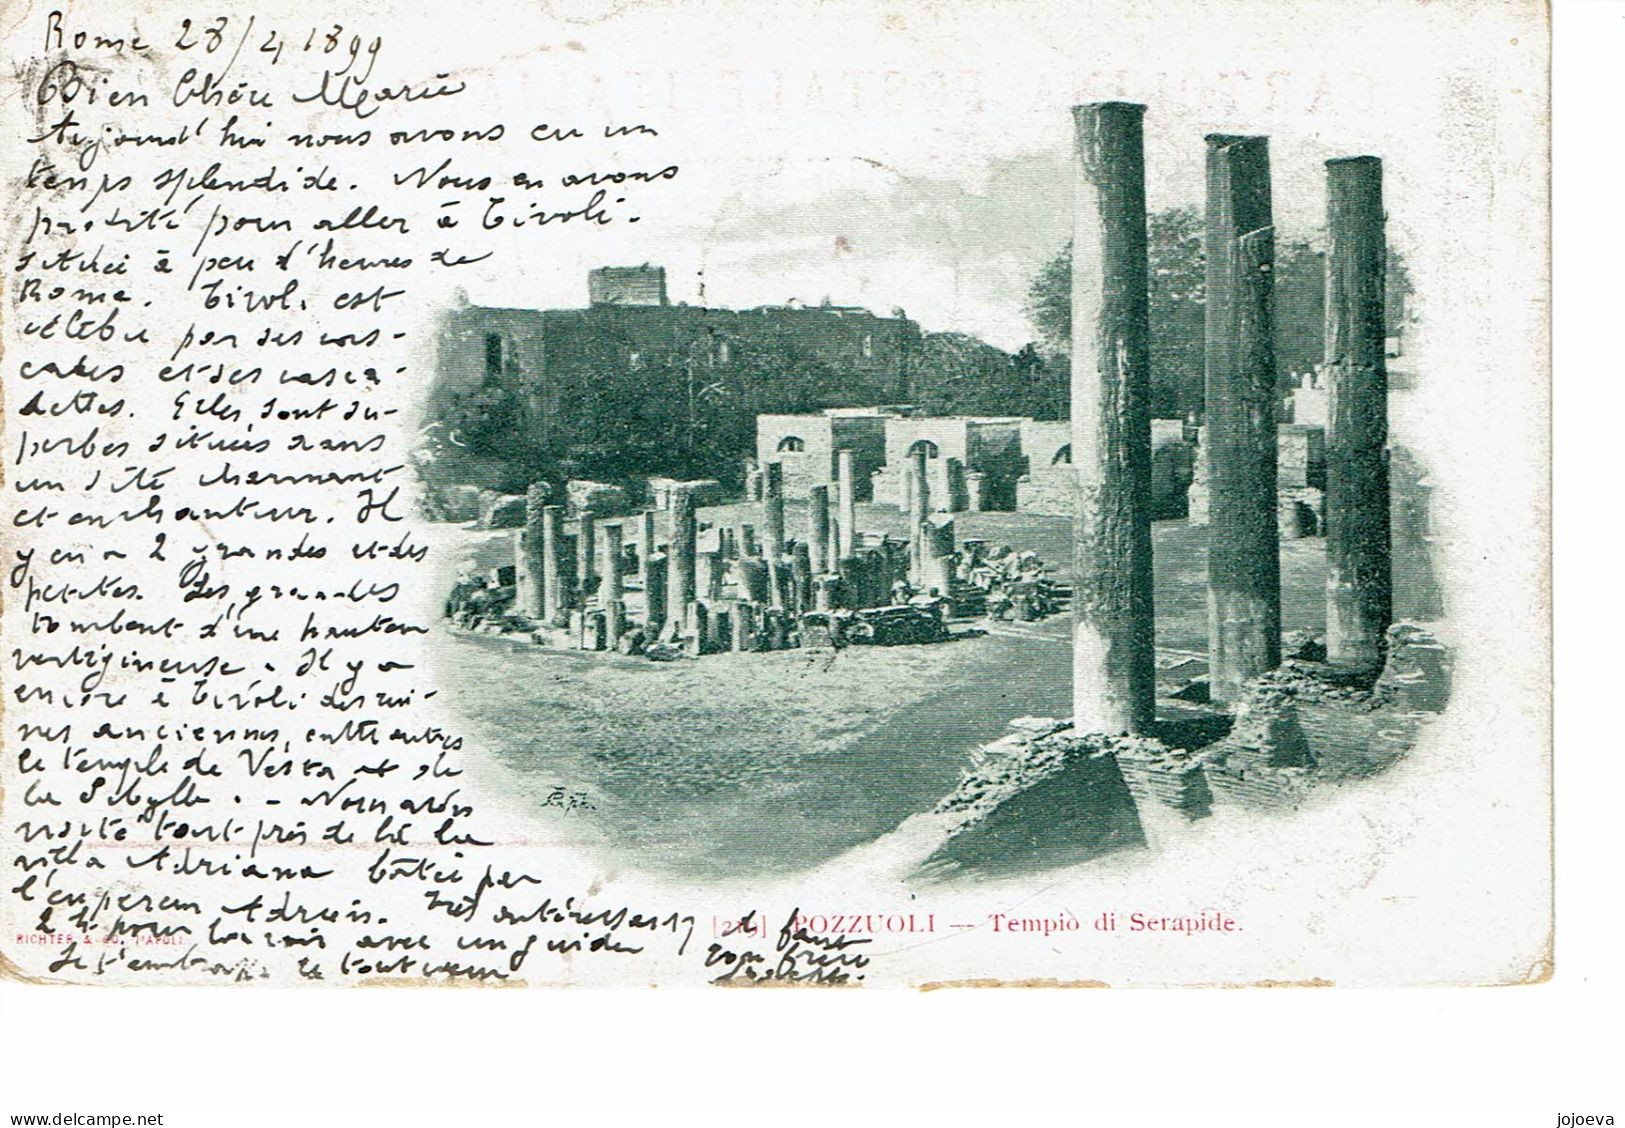 Rome 28/4 1899
Bien Chère Marie
Aujourd'hui nous avons eu un
temps splendide. Nous en avons
profité pour aller à Tivoli.
située à peu d'heures de
Rome. Tivoli est
célèbre par ses cas-
cades et ses casca-
dettes. Elles sont su-
perbes situées dans
un site charmant
et enchanteur. Il
y en a 2 grandes et des
petites. Les grandes
tombent d'une hauteur
vertigineuse. Il y a
encore à Tivoli des rui-
nes anciennes, entre autres
le temple de Vesta et de
la Sibylle. - Nous avons
visité tout près de là la
villa Adriana bâtie par
l'empereur Adrien. Très intéressant
2 h pour la voir avec un guide
Je t'embrasse de tout cœur
et
ton frère
[219] POZZUOLI — Tempio di Serapide.
RICHTER & CO. NAPOLI
delcampe.net
jojoeva